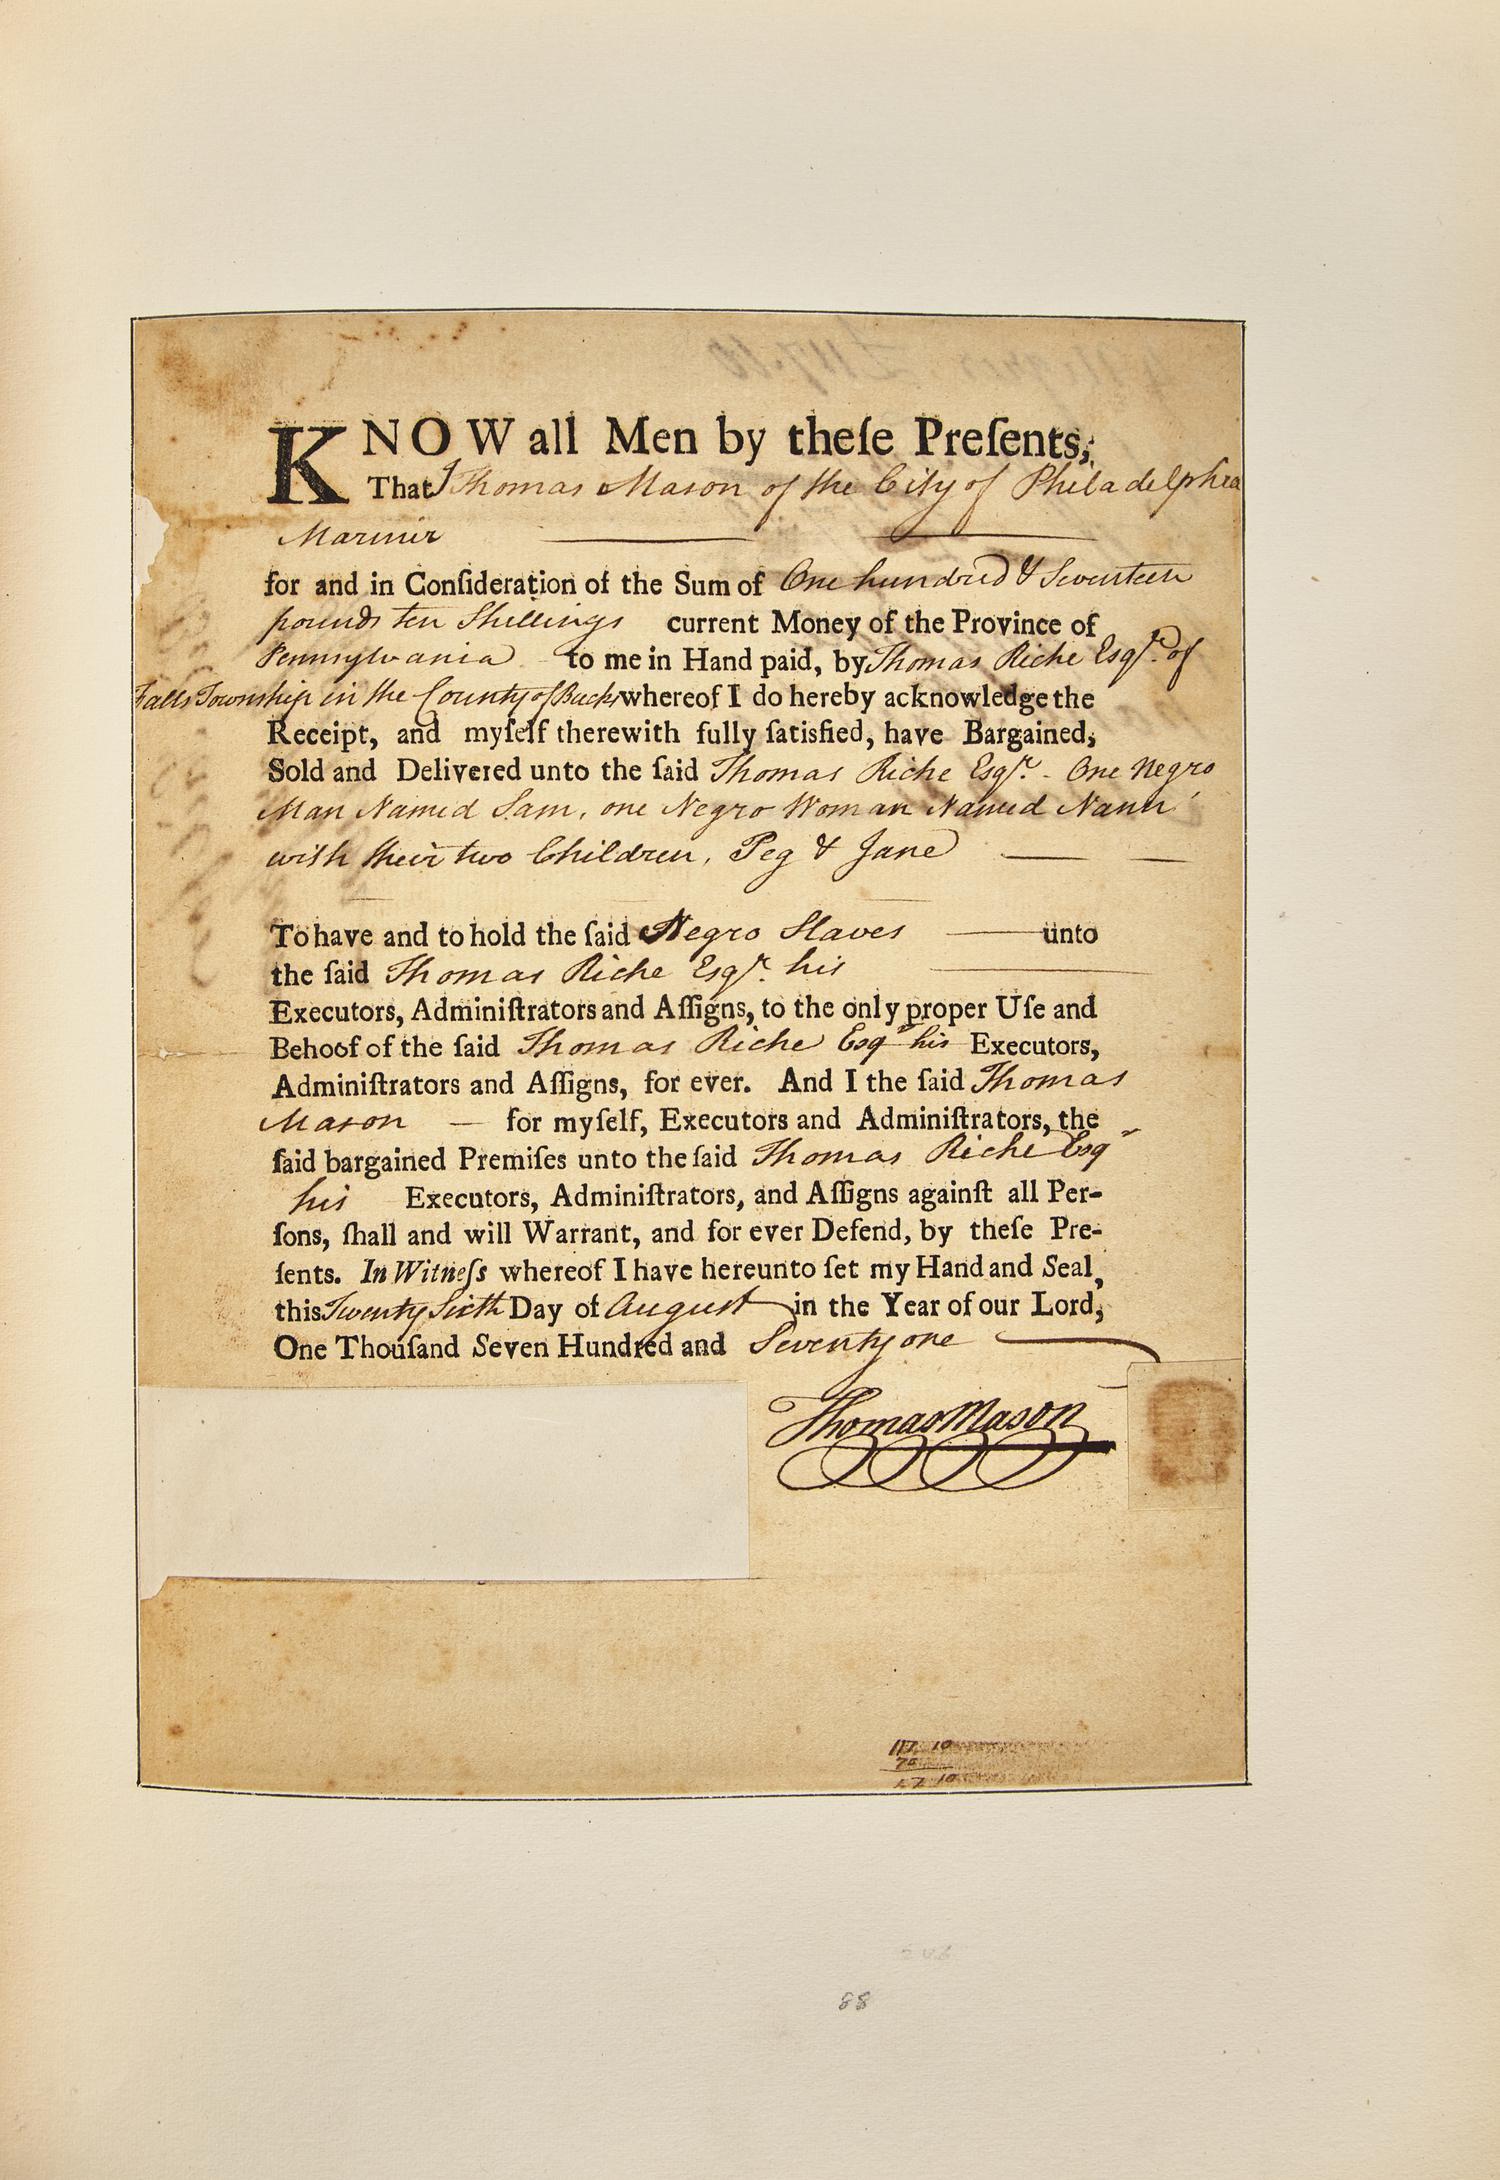 KNOW all Men by theſe Preſents,
That I Thomas Mason of the City of Philadelphia
Mariner
for and in Conſideration of the Sum of One hundred & Seventeen
pounds ten Shillings current Money of the Province of
Pennsylvania to me in Hand paid, by Thomas Riche Esqr. of
Falls Township in the County of Bucks whereof I do hereby acknowledge the
Receipt, and myſelf therewith fully ſatisfied, have Bargained,
Sold and Delivered unto the ſaid Thomas Riche Esqr. - One Negro
Man Named Sam, one Negro Woman Named Nann
with their two Children, Peg & Jane
To have and to hold the ſaid Negro Slaves unto
the ſaid Thomas Riche Esqr. his
Executors, Adminiſtrators and Aſſigns, to the only proper Uſe and
Behoof of the ſaid Thomas Riche Esqr his Executors,
Adminiſtrators and Aſſigns, for ever. And I the ſaid Thomas
Mason — for myſelf, Executors and Adminiſtrators, the
ſaid bargained Premiſes unto the ſaid Thomas Riche Esqr
his Executors, Adminiſtrators, and Aſſigns againſt all Per-
ſons, ſhall and will Warrant, and for ever Defend, by theſe Pre-
ſents. In Witneſs whereof I have hereunto ſet my Hand and Seal,
this Twenty Sixth Day of August in the Year of our Lord,
One Thouſand Seven Hundred and Seventy one
Thomas Mason
117. 10
70
47 10
88